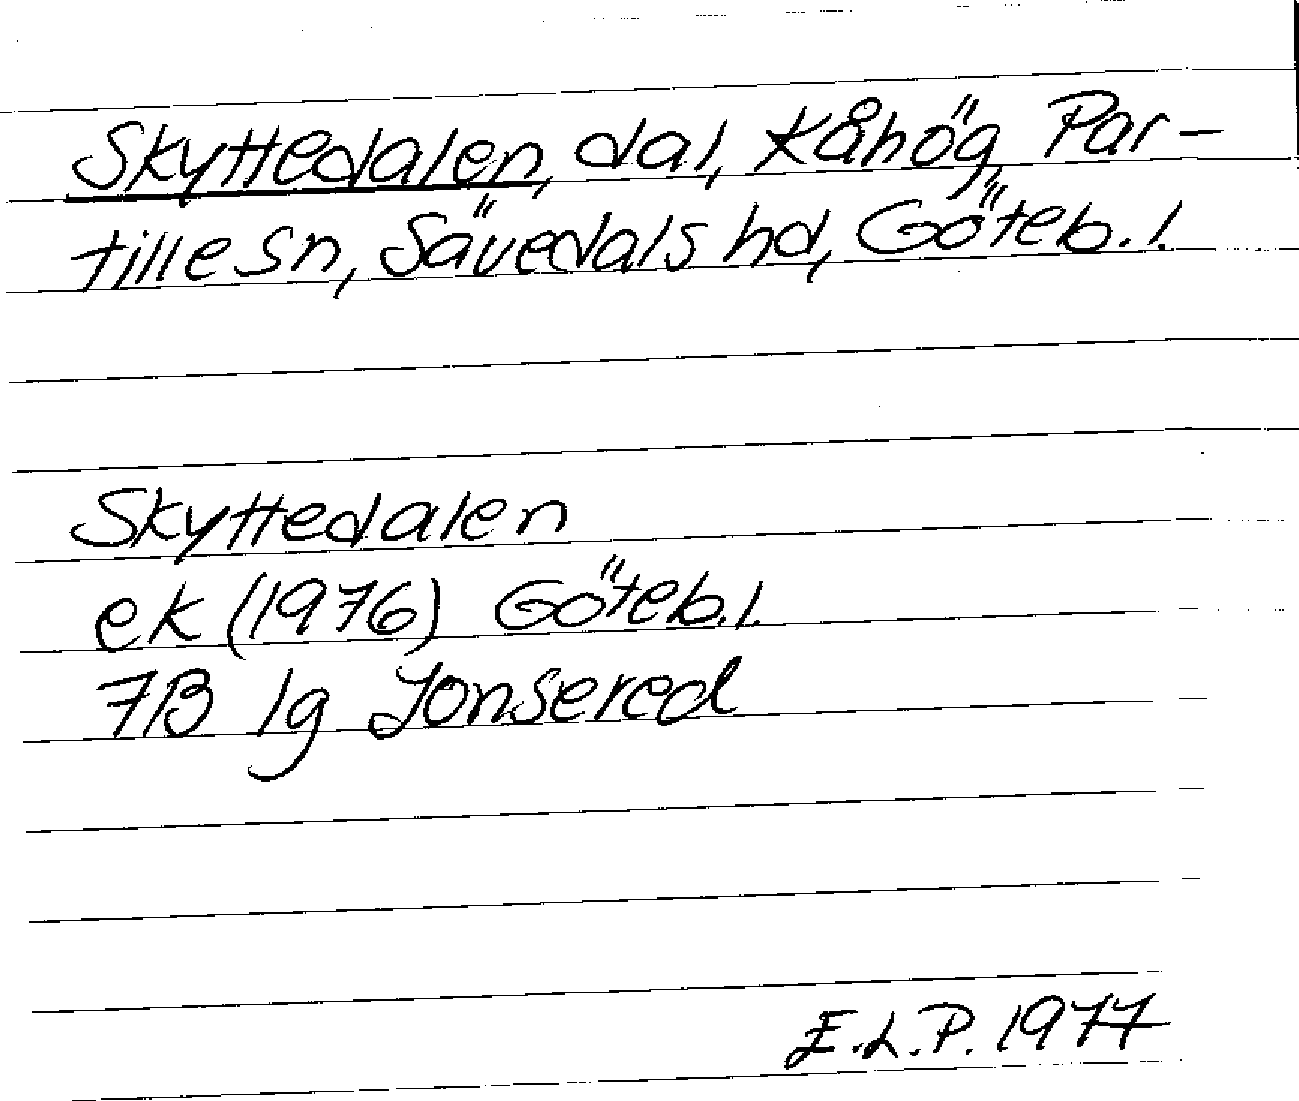 Skyttedalen, dal, Kåhög, Par-
tille sn, Sävedals hd, Göteb. l.
Skyttedalen
ek (1976) Göteb. l.
7B 1g Jonsered
E.L.P. 1977